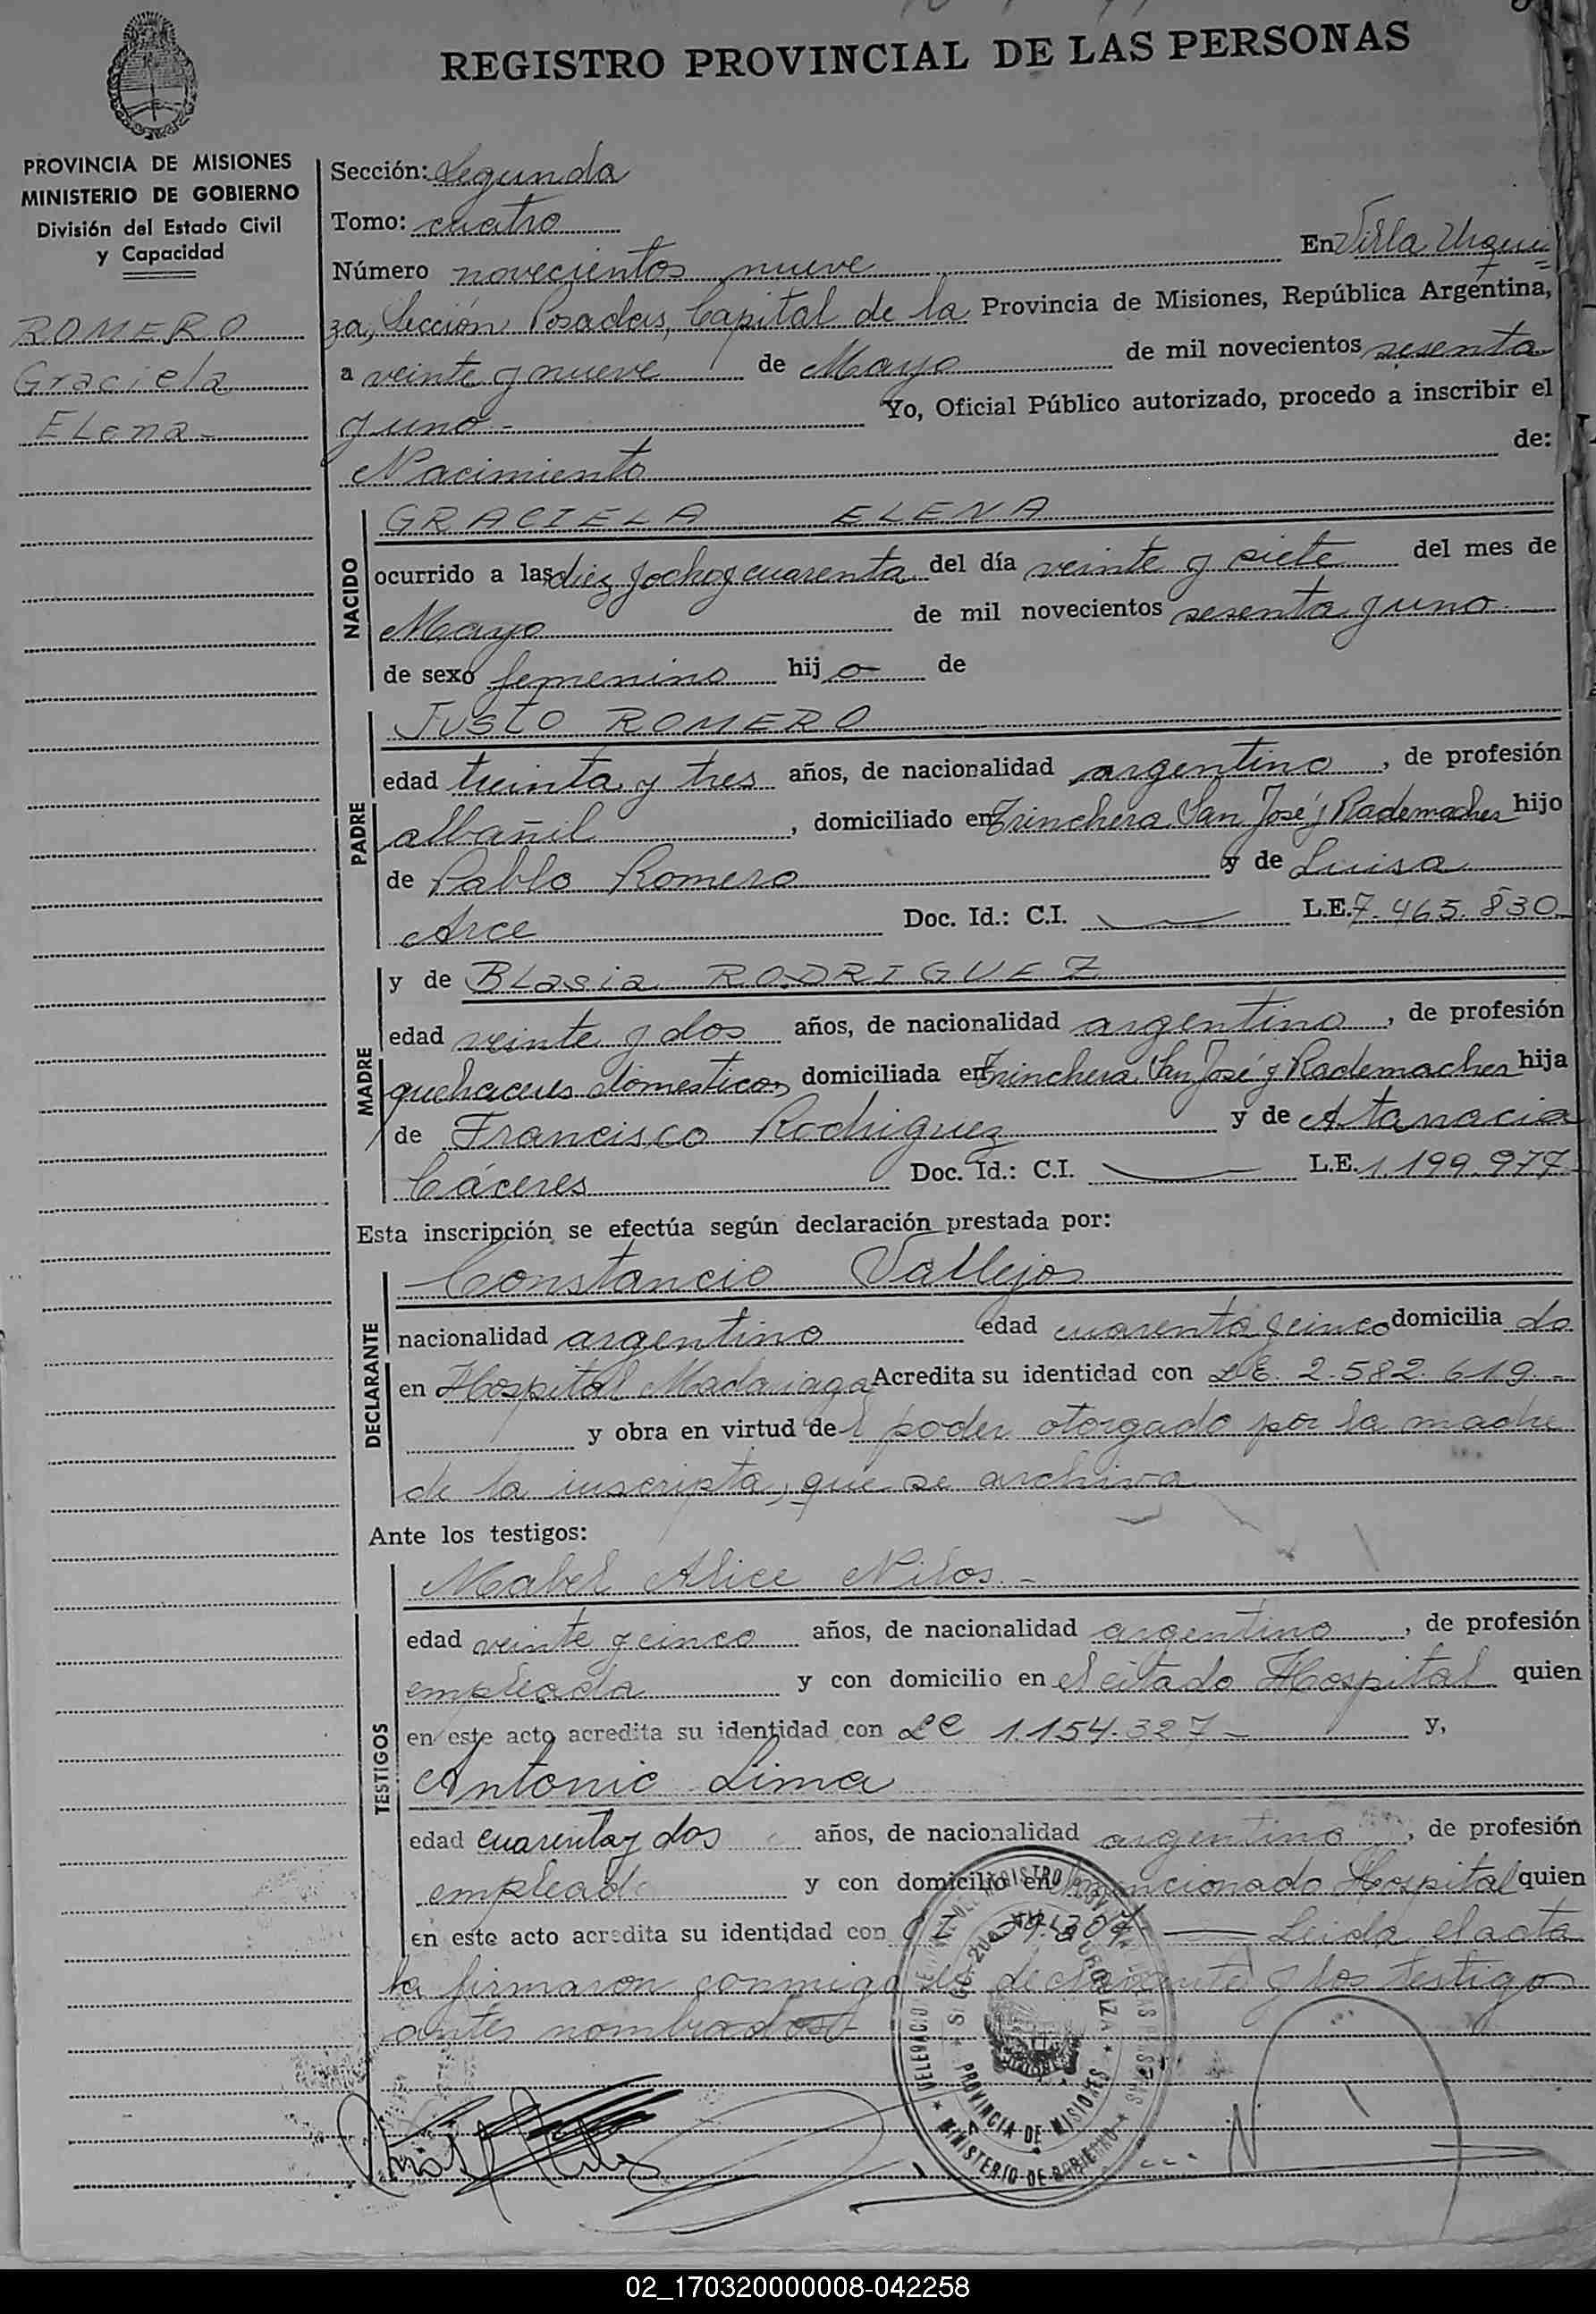 REGISTRO PROVINCIAL DE LAS PERSONAS
PROVINCIA DE MISIONES
MINISTERIO DE GOBIERNO
División del Estado Civil
y Capacidad
ROMERO
Graciela
Elena-
Sección: Segunda
Tomo: cuatro
Número novecientos nueve En Villa Urqui=
za, Sección Posadas, Capital de la Provincia de Misiones, República Argentina,
a veinte y nueve de Mayo de mil novecientos sesenta
y uno- Yo, Oficial Público autorizado, procedo a inscribir el
Nacimiento de:
NACIDO
GRACIELA ELENA
ocurrido a las diez y ocho y cuarenta del día veinte y siete del mes de
Mayo de mil novecientos sesenta y uno
de sexo femenino hij a de
PADRE
JUSTO ROMERO
edad treinta y tres años, de nacionalidad argentino, de profesión
albañil, domiciliado en Trinchera San José y Rademacher hijo
de Pablo Romero y de Luisa
Arce Doc. Id.: C.I. L.E. 7.465.830
MADRE
y de Blasia RODRIGUEZ
edad veinte y dos años, de nacionalidad argentino, de profesión
quehaceres domesticos domiciliada en Trinchera San José y Rademacher hija
de Francisco Rodriguez y de Atanacia
Cáceres Doc. Id.: C.I. L.E. 1.199.977
Esta inscripción se efectúa según declaración prestada por:
DECLARANTE
Constancio Vallejos
nacionalidad argentino edad cuarenta y cinco domicilia do
en Hospital Madariaga Acredita su identidad con LE. 2.582.619.-
y obra en virtud del poder otorgado por la madre
de la inscripta, que se archiva
Ante los testigos:
TESTIGOS
Mabel Alice Niños.-
edad veinte y cinco años, de nacionalidad argentino, de profesión
empleada y con domicilio en el citado Hospital quien
en este acto acredita su identidad con LC 1.154.327- y,
Antonio Lima
edad cuarenta y dos años, de nacionalidad argentino, de profesión
empleado y con domicilio en mencionado Hospital quien
en este acto acredita su identidad con CI Leida el acta
la firmaron conmigo el declarante y los testigos
antes nombrados
PROVINCIA DE MISIONES
MINISTERIO DE GOBIERNO
02_170320000008-042258